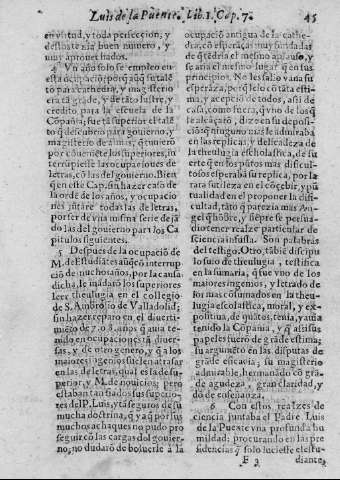 Luis de la Puente. Lib. 1. Cap. 7. 45
en virtud, y toda perfeccion, y
dessoate nia buen numero, y
muy aprouechados.
4 Vn año solo se empleo en
esta ocupació; porq̃ aũq̃ su talé
to para cathedra, y magisterio
era tā grāde, y de tāto lustre, y
credito para la escuela de la
Cópañia; fue tã superior el talé
to q̃ descubrio para gouierno, y
magisterio de almas, q̃ tuuieró
por cóueniéte los superiores, in
terrūpiesse las ocupaciones de
letras, có las del gouierno. Bien
q̃ en este Cap. sin hazer caso de
la ordé de los años, y ocupacio
nes jūtare todas las de letras,
por ser de vna misma serie dejā
do las del gouierno para los Ca
pitulos siguientes.
5 Despues de la ocupació de
M. de Estudiátes auiẽdo interrup
ció de muchos años, por la causa
dicha, le mādaró los superiores
leer theulugia en el collegio
de S. Ambrosio de Valladolid;
sin hazer reparo en el diuerti-
miéto de 7. o 8. años q̃ auia te-
nido en ocupaciones tā diuer-
sas, y de otro genero, y q̃ a los
maiores ingenios suelen atrasar
en las de letras, qual es la de su-
perior, y M. de nouicios; pero
estaban tan fiados sus superio-
res del P. Luis, y tā seguros de su
mucha doctrina, q̃ y aq̃ por sus
muchos achaques no pudo pro
seguir có las cargas del gouier
no; no dudaró de boluerle à la
ocupació antigua de la cathe-
dra, có esperāças muy fundadas
de q̃ tédria el mesmo aplauso, y
acepció q̃ antes. No les salio vana su
esperāza, porq̃ leio có tāta esti-
ma, y acepció de todos, assi de
casa, como fuera, q̃ vno de los q̃
le alcāçó, dize assi en su depo-
sició: q̃ ninguno mas le admiraba
en las replicas, y delicadeza de
la theulugia escholastica, de su
erte q̃ en los pūtos mas dificul-
tosos esperaba su replica, por la
rara sutileza en el cócebir, y pū
tualidad en el proponer la difi-
cultad, táto q̃ parezia mas An-
gel q̃ hóbre, y siépre se persua-
dio tener realze particular de
sciencia infussa. Son palabras
del testigo. Otro, tābié discipu
lo suio de theulugia, testifica
en la sumaria, q̃ fue vno de los
maiores ingenios, y letrado de
forma cósumados en la theu-
lugia escolastica, moral, y ex-
positiua, de quātos, tenia, y auia
tenido la Cópañia, y q̃ assi sus
papeles fueró de grāde estima;
su argumẽto en las disputas de
grāde eficacia; su magisterio
admirable, hermanādo có grā-
de agudeza, gran claridad, y
do de enseñanza.
6 Con estos realzes de
ciencia juntaba el Padre Luis
de la Puente vna profunda hu
mildad; procurando en las pre
sidencias q̃ solo luciesse el estu-
F 3 diante,